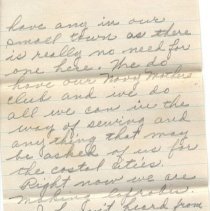 have any in our
small town as there
is really no need for
one here. We do
have our Navy Mothers
club and we do
all we can in the
way of sewing and
anything that may
be asked of us for
the costal cities.
Right now we are
making
heard from